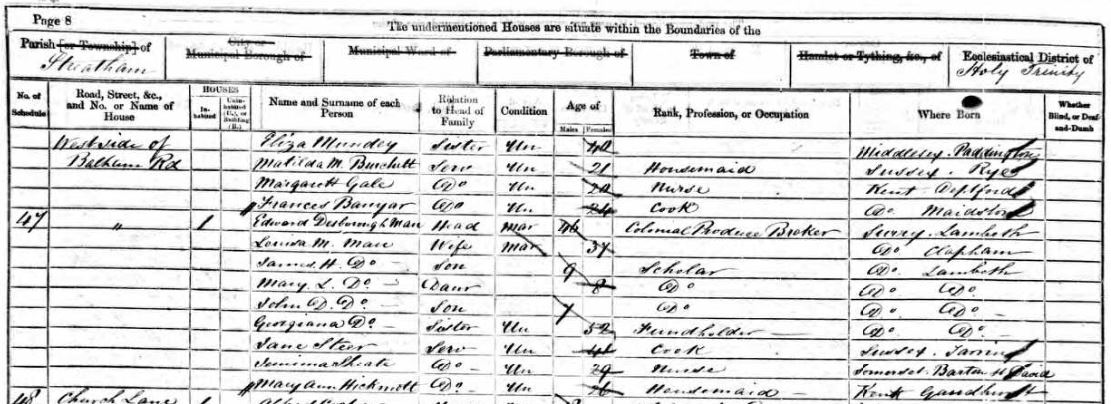 Page 8
The undermentioned Houses are situate within the Boundaries of the
Parish [or Township] of Streatham
City or Municipal Borough of
Municipal Ward of
Parliamentary Borough of
Town of
Hamlet or Tything, &c., of
Ecclesiastical District of Holy Trinity
No. of Schedule
Road, Street, &c., and No. or Name of House
HOUSES
Inhabited
Uninhabited (U.), or Building (B.)
Name and Surname of each Person
Relation to Head of Family
Condition
Age of
Males
Females
Rank, Profession, or Occupation
Where Born
Whether Blind, or Deaf-and-Dumb
West side of Eliza Mundey Sister Un 40 Middlesex Paddington
Balham Rd Matilda M. Burchett Serv Un 21 Housemaid Sussex Rye
Margarett Gale Do Un 20 Nurse Kent Deptford
Frances Banyar Do Un 24 Cook Do Maidstone
47 " 1 Edward Desborough Man Head Mar 46 Colonial Produce Broker Surrey Lambeth
Louisa M. Man Wife Mar 37 Do Clapham
James H. Do Son 9 Scholar Do Lambeth
Mary L. Do Daur 8 Do Do Do
John D. Do Son 7 Do Do Do
Georgiana Do Sister Un 52 Fundholder Do Do
Jane Steer Serv Un 41 Cook Sussex Tarring
Jemima Sheate Do Un 29 Nurse Somerset Barton St David
Mary Ann Hickmott Do Un 26 Housemaid Kent Goudhurst
48 Church Lane 1